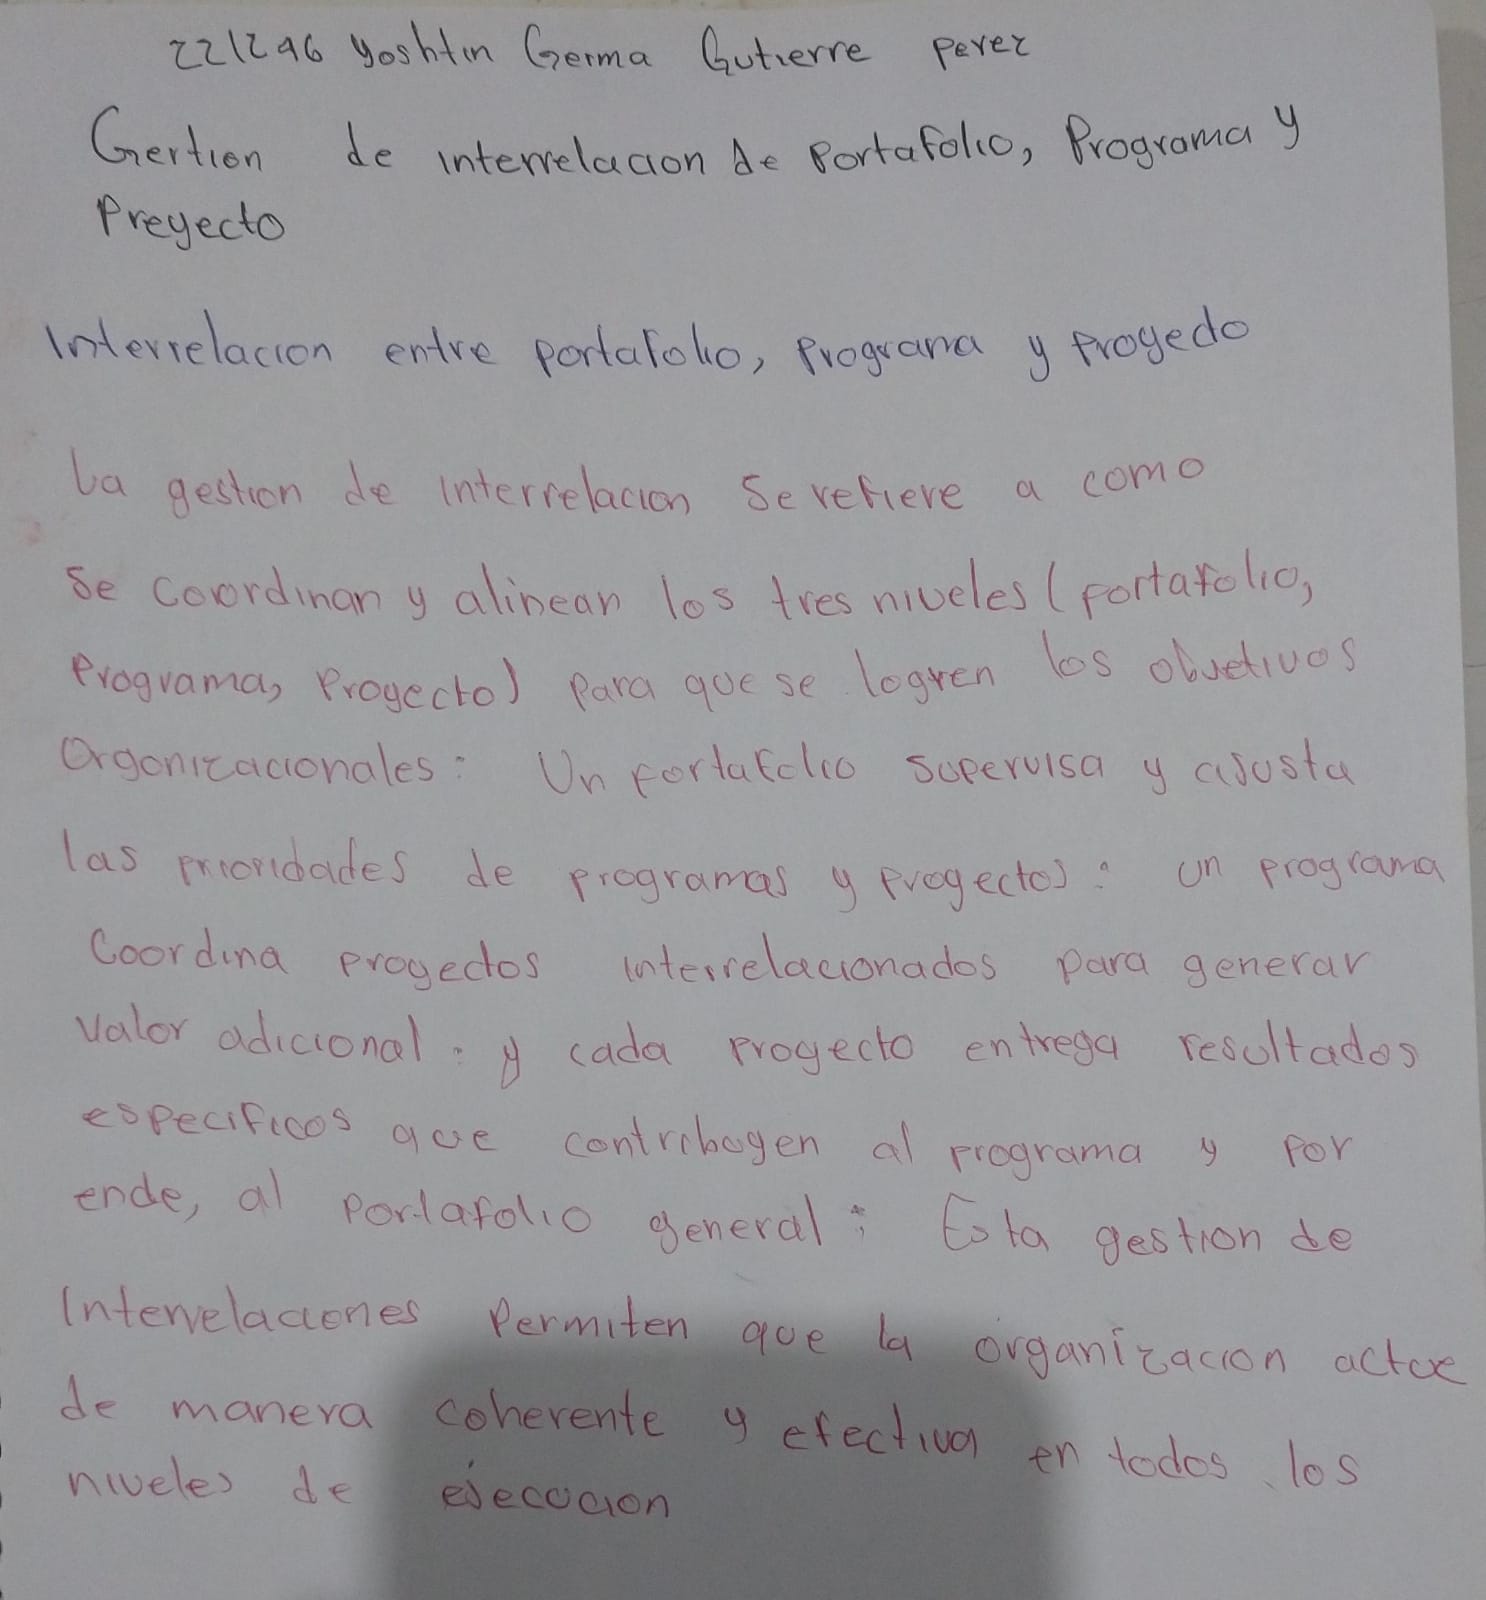 221296 Yoshtin Germa Gutierre perez
Gertion de interrelacion de Portafolio, Programa y
Preyecto
Interrelacion entre portafolio, Programa y Proyecto
La gestion de interrelacion Se refiere a como
Se coordinan y alinean los tres niveles (portafolio,
Programa, Proyecto) Para que se logren los objetivos
Organizacionales: Un portafolio supervisa y ajusta
las prioridades de programas y proyectos: un programa
Coordina proyectos interrelacionados para generar
valor adicional: y cada proyecto entrega resultados
especificos que contribuyen al programa y por
ende, al Portafolio general; Esta gestion de
Interrelaciones Permiten que la organizacion actue
de manera coherente y efectiva en todos los
niveles de ejecucion